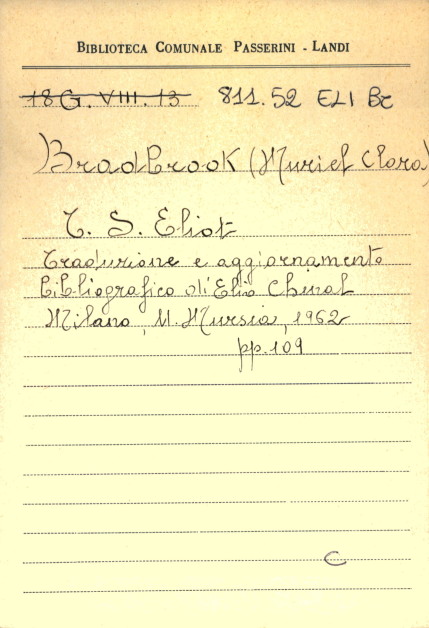 BIBLIOTECA COMUNALE PASSERINI - LANDI
18 G. VIII. 13 811.52 ELI Br
Bradbrook (Muriel Clara)
T. S. Eliot
Traduzione e aggiornamento
bibliografico di Elio Chinol
Milano, U. Mursia, 1962
pp. 109
C